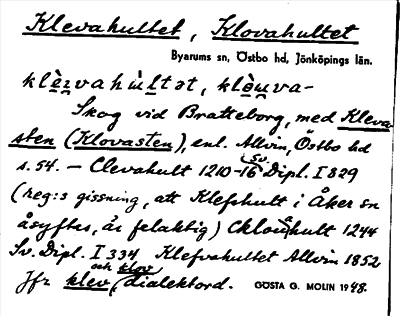 Klevahultet, Klovahultet
Byarums sn, Östbo hd, Jönköpings län.
klè̱i̯vahu̇ltət, klò̱u̯va-
Skog vid Bratteborg, med Kleva-
sten (Klovasten), enl. Allvin, Östbo hd
s. 54. – Clevahult 1210-16 Sv. Dipl. I 829
(reg:s gissning, att Klefshult i Åker sn
åsyftas, är felaktig) Cklouahult 1244
Sv. Dipl. I 334 Klefvahultet Allvin 1852
Jfr klev och klov, dialektord. GÖSTA G. MOLIN 1948.